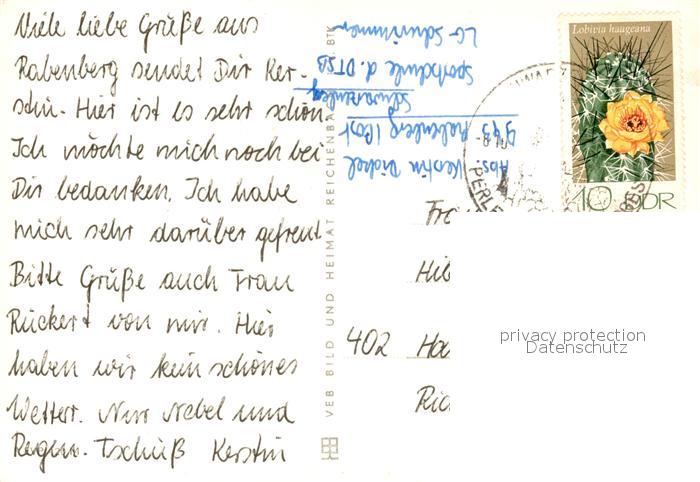 Viele liebe Grüße aus
Rabenberg sendet Dir Ker-
stin. Hier ist es sehr schön.
Ich möchte mich noch bei
Dir bedanken. Ich habe
mich sehr darüber gefreut
Bitte Grüße auch Frau
Rückert von mir. Hier
haben wir kein schönes
Wetter. Nur Nebel und
Regen. Tschüß Kerstin
VEB BILD UND HEIMAT REICHENBACH I. BTK
Abs. Kerstin
943 Rabenberg (Post
Schwarzenberg
Sportschule d. DTSB
LG Schwimmen
Lobivia haageana
10 DDR
PERLE
Fr
Hil
402 Ha
Ric
privacy protection
Datenschutz